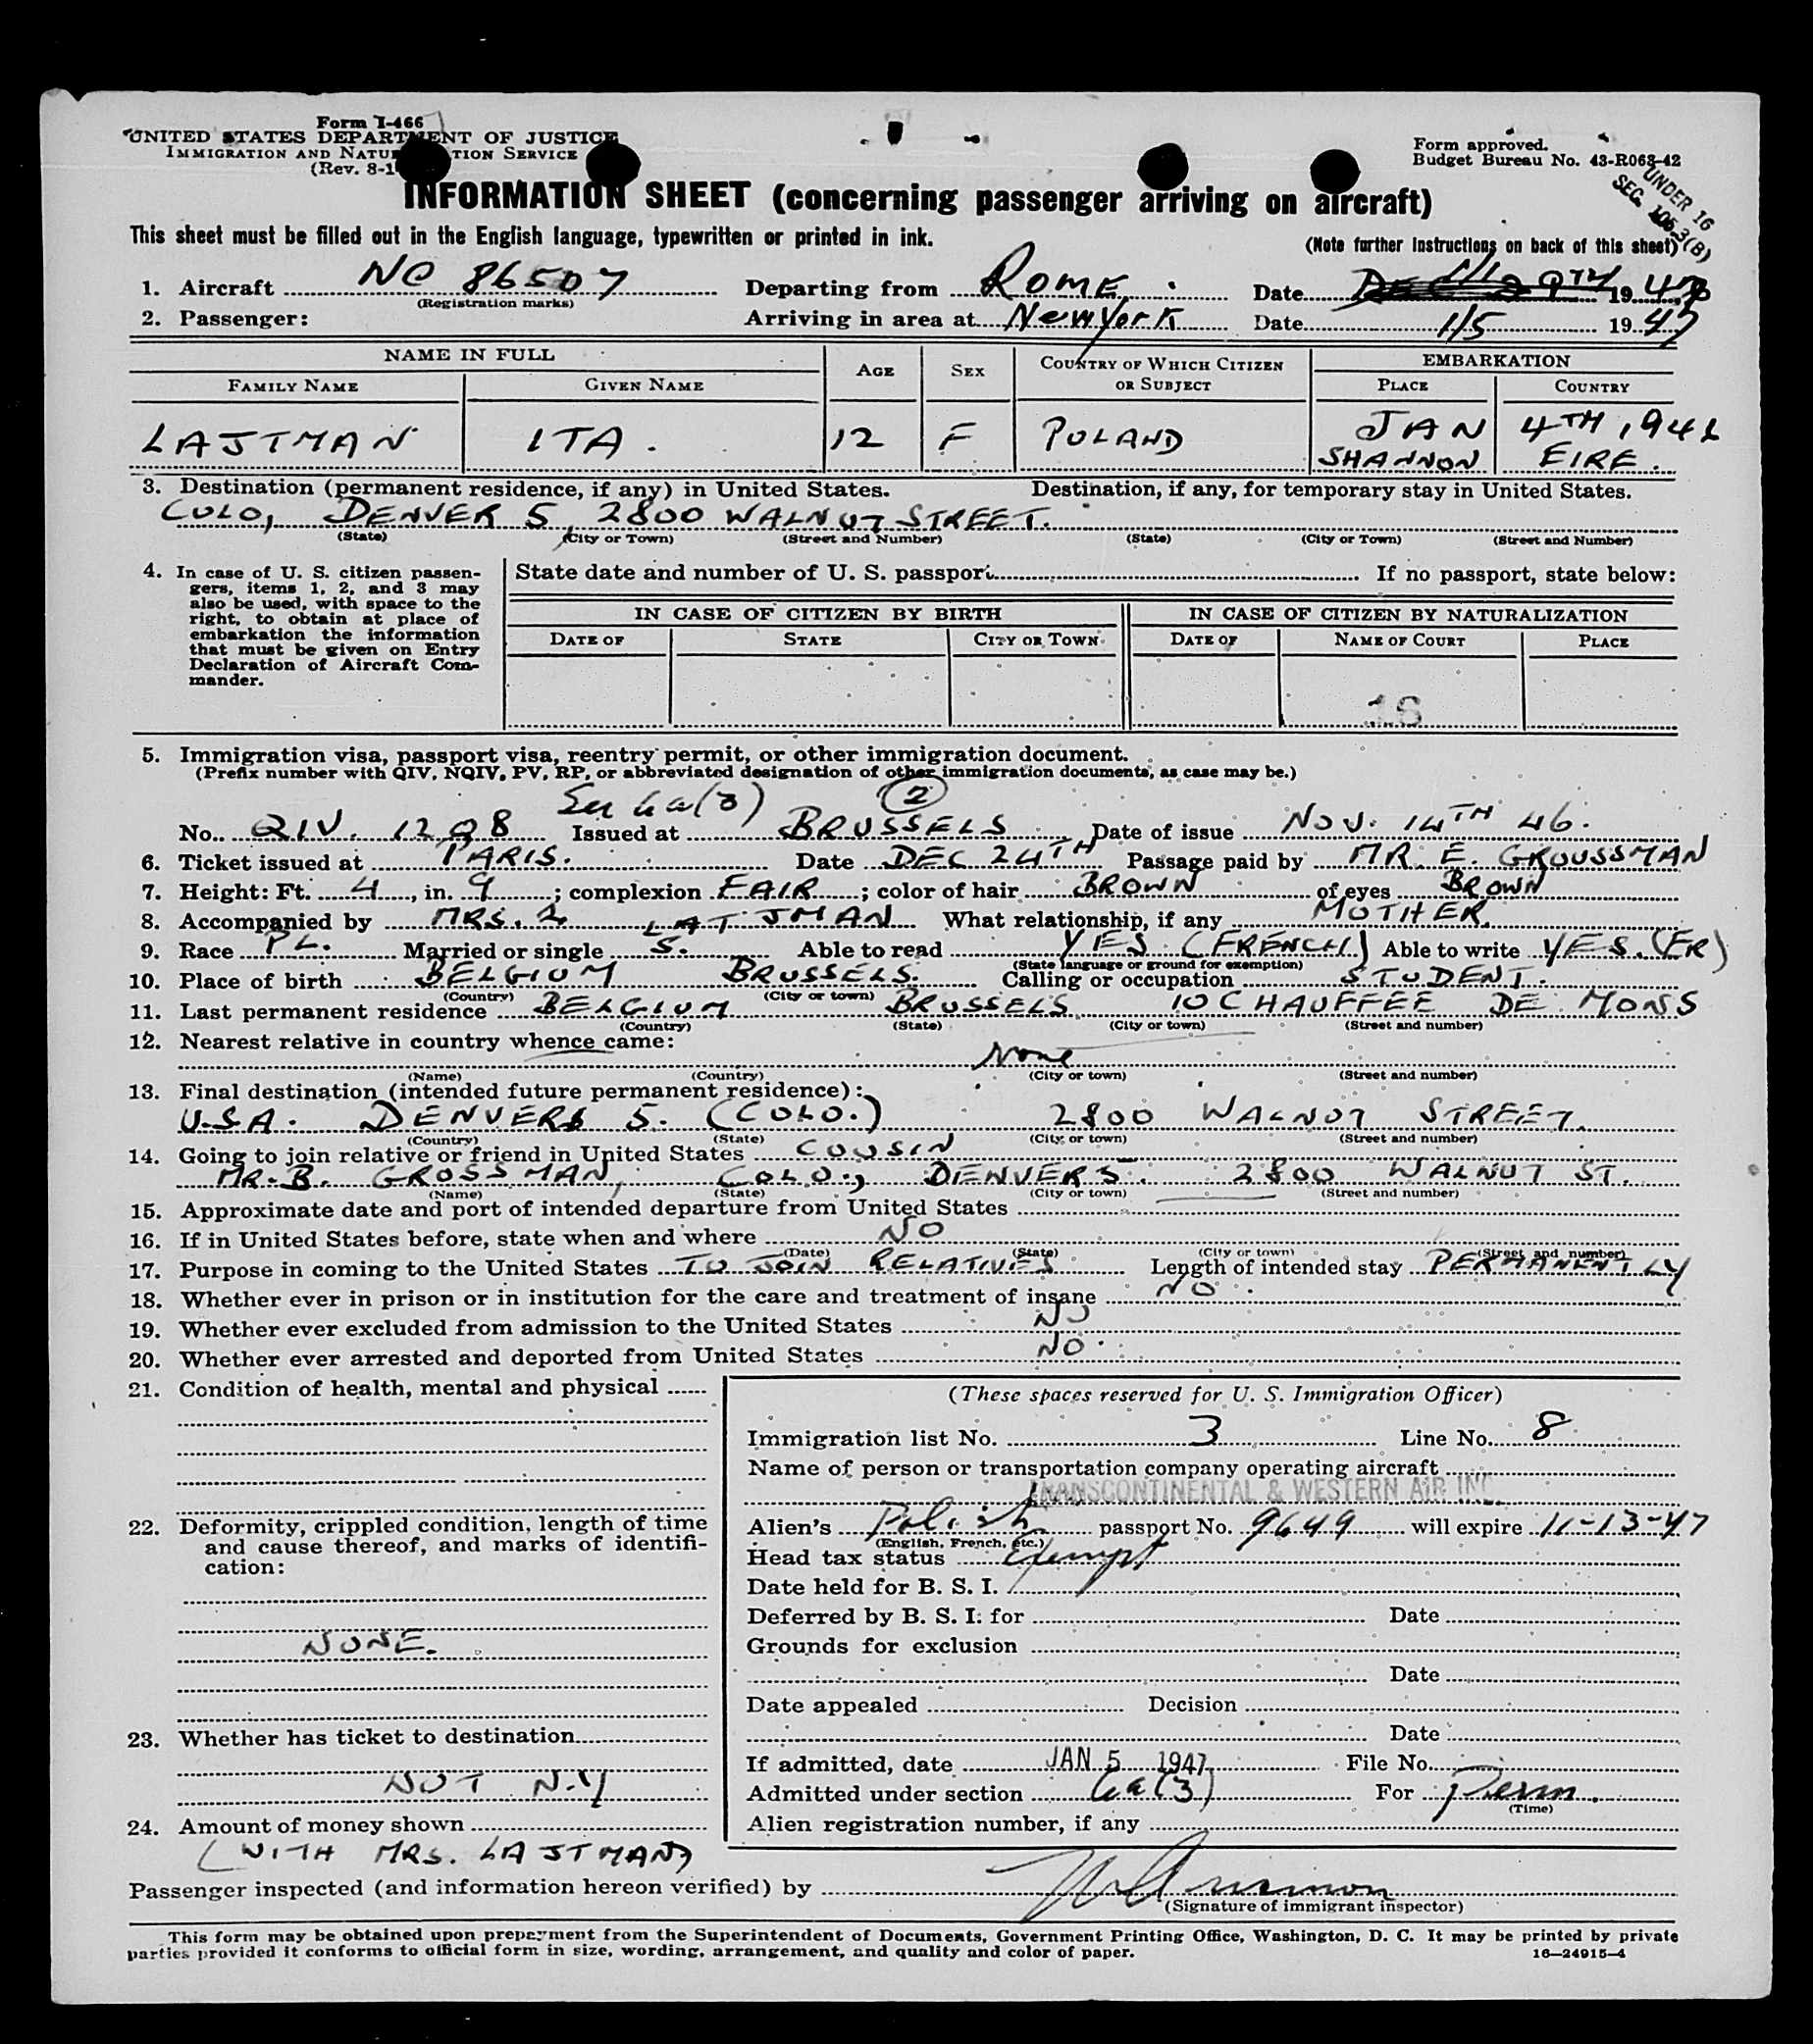 Form I-466
UNITED STATES DEPARTMENT OF JUSTICE
IMMIGRATION AND NATU TION SERVICE
(Rev. 8-1
Form approved.
Budget Bureau No. 43-R063-42
UNDER 16
SEC. 105.3(B)
INFORMATION SHEET (concerning passenger arriving on aircraft)
This sheet must be filled out in the English language, typewritten or printed in ink.
(Note further instructions on back of this sheet)
1. Aircraft NC 86507 Departing from ROME. Date 1947
(Registration marks)
2. Passenger: Arriving in area at New York Date 1/5 1947
NAME IN FULL AGE SEX COUNTRY OF WHICH CITIZEN OR SUBJECT EMBARKATION
FAMILY NAME GIVEN NAME PLACE COUNTRY
LAJTMAN ITA. 12 F POLAND JAN 4TH
SHANNON EIRE.
3. Destination (permanent residence, if any) in United States. Destination, if any, for temporary stay in United States.
COLO, DENVER 5, 2800 WALNUT STREET.
(State) (City or Town) (Street and Number) (State) (City or Town) (Street and Number)
4. In case of U. S. citizen passen-
gers, items 1, 2, and 3 may
also be used, with space to the
right, to obtain at place of
embarkation the information
that must be given on Entry
Declaration of Aircraft Com-
mander.
State date and number of U. S. passport If no passport, state below:
IN CASE OF CITIZEN BY BIRTH IN CASE OF CITIZEN BY NATURALIZATION
DATE OF STATE CITY OR TOWN DATE OF NAME OF COURT PLACE
16
5. Immigration visa, passport visa, reentry permit, or other immigration document.
(Prefix number with QIV, NQIV, PV, RP, or abbreviated designation of other immigration documents, as case may be.)
Sec 6a(3) 2
No. QIV. 1298 Issued at BRUSSELS Date of issue NOV. 14TH 46.
6. Ticket issued at PARIS. Date DEC 24TH Passage paid by MR. E. GROUSSMAN
7. Height: Ft. 4, in. 9; complexion FAIR; color of hair BROWN of eyes BROWN
8. Accompanied by MRS. LAJTMAN What relationship, if any MOTHER.
9. Race PL. Married or single S. Able to read YES (FRENCH) Able to write YES. (FR)
(State language or ground for exemption)
10. Place of birth BELGIUM BRUSSELS. Calling or occupation STUDENT.
(Country) (City or town)
11. Last permanent residence BELGIUM BRUSSELS 10 CHAUFFEE DE MONS
(Country) (State) (City or town) (Street and number)
12. Nearest relative in country whence came:
None
(Name) (Country) (City or town) (Street and number)
13. Final destination (intended future permanent residence):
U.S.A. DENVER 5. (COLO.) 2800 WALNUT STREET.
(Country) (State) (City or town) (Street and number)
14. Going to join relative or friend in United States COUSIN
MR. B. GROSSMAN, COLO., DENVER 5. 2800 WALNUT ST.
(Name) (State) (City or town) (Street and number)
15. Approximate date and port of intended departure from United States
16. If in United States before, state when and where NO
(Date) (State) (City or town) (Street and number)
17. Purpose in coming to the United States TO JOIN RELATIVES Length of intended stay PERMANENTLY
18. Whether ever in prison or in institution for the care and treatment of insane NO.
19. Whether ever excluded from admission to the United States NO
20. Whether ever arrested and deported from United States NO.
21. Condition of health, mental and physical
22. Deformity, crippled condition, length of time
and cause thereof, and marks of identifi-
cation:
NONE.
23. Whether has ticket to destination
NOT N.Y
24. Amount of money shown
(WITH MRS. LAJTMAN)
(These spaces reserved for U. S. Immigration Officer)
Immigration list No. 3 Line No. 8
Name of person or transportation company operating aircraft
TRANSCONTINENTAL & WESTERN AIR INC.
Alien's Polish passport No. 9649 will expire 11-13-47
(English, French, etc.)
Head tax status Exempt
Date held for B. S. I.
Deferred by B. S. I. for Date
Grounds for exclusion
Date
Date appealed Decision
Date
If admitted, date JAN 5 1947 File No.
Admitted under section 6a(3) For Perm.
(Time)
Alien registration number, if any
Passenger inspected (and information hereon verified) by
(Signature of immigrant inspector)
This form may be obtained upon prepayment from the Superintendent of Documents, Government Printing Office, Washington, D. C. It may be printed by private
parties provided it conforms to official form in size, wording, arrangement, and quality and color of paper. 16—24915-4